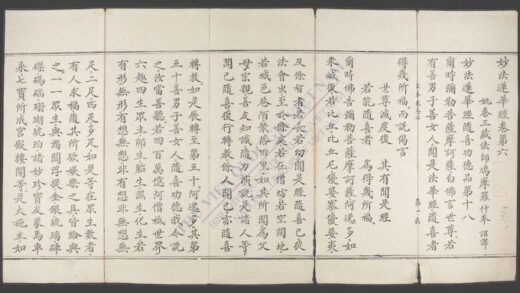 妙法蓮華經卷第六
姚秦三藏法師鳩摩羅什奉 詔譯
妙法蓮華經隨喜功德品第十八
爾時彌勒菩薩摩訶薩白佛言世尊若
有善男子善女人聞是法華經隨喜者
得幾所福而說偈言
世尊滅度後 其有聞是經
若能隨喜者 為得幾所福
爾時佛告彌勒菩薩摩訶薩阿逸多如
來滅後若比丘比丘尼優婆塞優婆夷
及餘智者若長若幼聞是經隨喜已從
法會出至於餘處若在僧坊若空閑地
若城邑巷陌聚落田里如其所聞為父
母宗親善友知識隨力演說是諸人等
聞已隨喜復行轉教餘人聞已亦隨喜
轉教如是展轉至第五十阿逸多其第
五十善男子善女人隨喜功德我今說
之汝當善聽若四百萬億阿僧祇世界
六趣四生眾生卵生胎生濕生化生若
有形無形有想無想非有想非無想無
足二足四足多足如是等在眾生數者
有人求福隨其所欲娛樂之具皆給與
之一一眾生與滿閻浮提金銀琉璃硨
磲碼碯珊瑚琥珀諸妙珍寶及象馬車
乘七寶所成宮殿樓閣等是大施主如